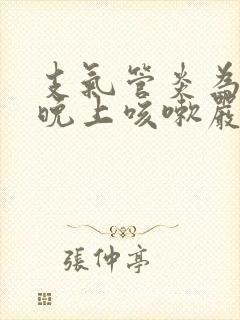 支氣管炎為
晚上咳嗽嚴
張仲亭